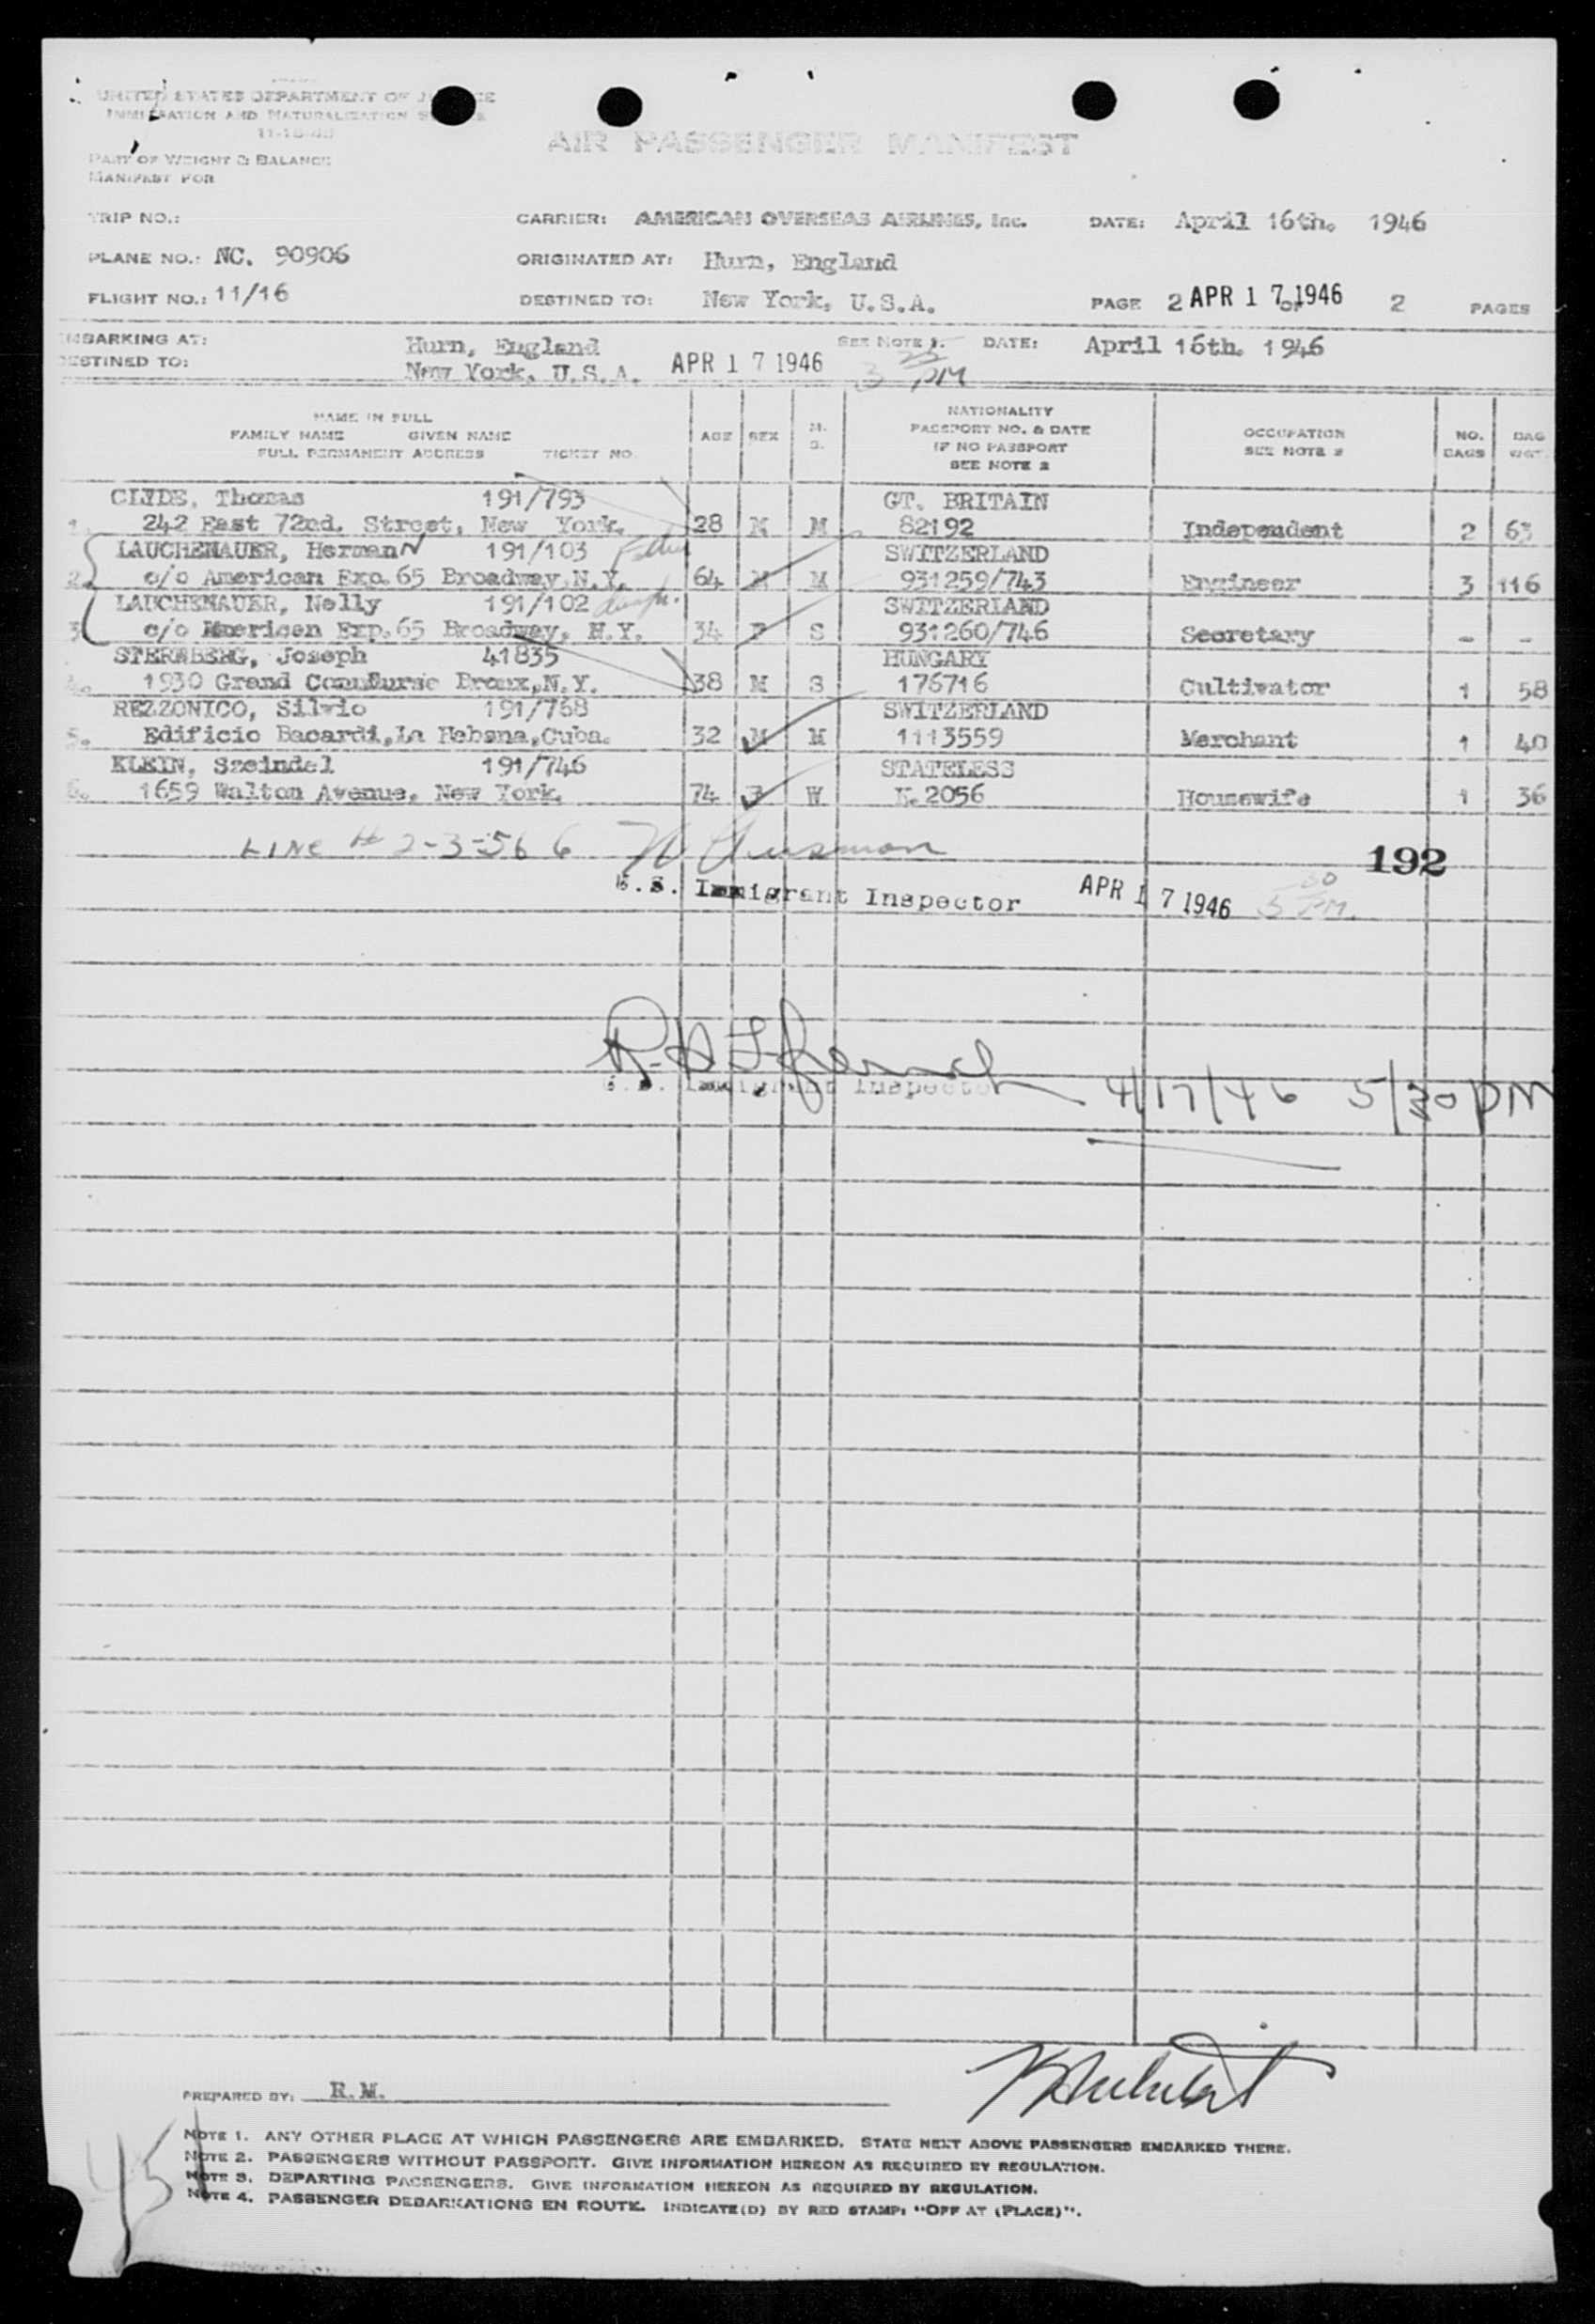 UNITED STATES DEPARTMENT OF JUSTICE
IMMIGRATION AND NATURALIZATION SERVICE
AIR PASSENGER MANIFEST
PART OF WEIGHT & BALANCE
MANIFEST FOR
TRIP NO.: CARRIER: AMERICAN OVERSEAS AIRLINES, Inc. DATE: April 16th. 1946
PLANE NO.: NC. 90906 ORIGINATED AT: Hurn, England
FLIGHT NO.: 11/16 DESTINED TO: New York, U.S.A. PAGE 2 APR 17 1946 OF 2 PAGES
EMBARKING AT: Hurn, England SEE NOTE 1. DATE: April 16th. 1946
DESTINED TO: New York, U.S.A. APR 17 1946 3 25 PM
NAME IN FULL
FAMILY NAME GIVEN NAME
FULL PERMANENT ADDRESS TICKET NO.
AGE SEX M. S.
NATIONALITY
PASSPORT NO. & DATE
IF NO PASSPORT
SEE NOTE 2
OCCUPATION
SEE NOTE 2
NO. BAGS
BAG WGT.
CLYDE, Thomas 191/793 GT. BRITAIN
1. 242 East 72nd. Street, New York. 28 M M 82192 Independent 2 63
LAUCHENAUER, HermanN 191/103 Father SWITZERLAND
2. c/o American Exp. 65 Broadway, N.Y. 64 M M 931259/743 Engineer 3 116
LAUCHENAUER, Nelly 191/102 SWITZERLAND
3. c/o American Exp. 65 Broadway, N.Y. 34 F S 931260/746 Secretary - -
STERNBERG, Joseph 41835 HUNGARY
4. 1930 Grand Concourse Bronx, N.Y. 38 M S 176716 Cultivator 1 58
REZZONICO, Silvio 191/768 SWITZERLAND
5. Edificio Bacardi, La Habana, Cuba. 32 M M 1113559 Merchant 1 40
KLEIN, Szeindel 191/746 STATELESS
6. 1659 Walton Avenue, New York. 74 F W K.2056 Housewife 1 36
LINE # 2-3-5 6
192
U.S. Immigrant Inspector APR 17 1946 5 30 PM.
U.S. Immigrant Inspector 4/17/46 5/30 PM
PREPARED BY: R.M.
NOTE 1. ANY OTHER PLACE AT WHICH PASSENGERS ARE EMBARKED. STATE NEXT ABOVE PASSENGERS EMBARKED THERE.
NOTE 2. PASSENGERS WITHOUT PASSPORT. GIVE INFORMATION HEREON AS REQUIRED BY REGULATION.
NOTE 3. DEPARTING PASSENGERS. GIVE INFORMATION HEREON AS REQUIRED BY REGULATION.
NOTE 4. PASSENGER DEBARKATIONS EN ROUTE. INDICATE(D) BY RED STAMP: "OFF AT (PLACE)".
451